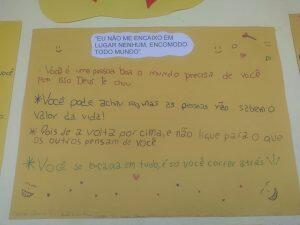 "EU NÃO ME ENCAIXO EM
LUGAR NENHUM, ENCOMODO
TODO MUNDO".
Você é uma pessoa boa o mundo precisa de você
por isso Deus te
*Você pode achar as pessoas não sabem o
valor da vida!
* a volta por cima, e não ligue para o que
os outros pensam de você
*Você se encaixa em tudo, é só você correr atrás